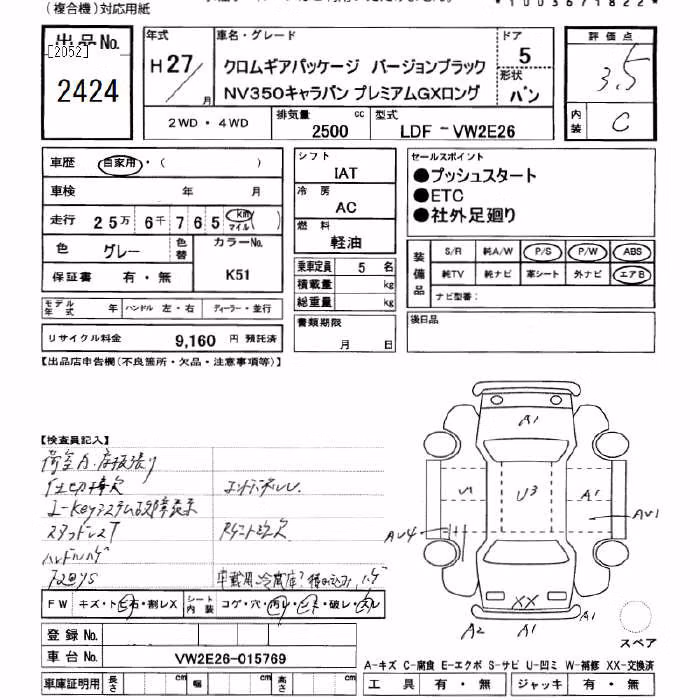 (複合機)対応用紙
*1003671822*
出品No.
[2052]
2424
年式
H 27/ 月
車名・グレード
クロムギアパッケージ バージョンブラック
NV350キャラバン プレミアムGXロング
ドア
5
形状
バン
評価点
3.5
内装
C
2WD・4WD
排気量
2500 cc
型式
LDF-VW2E26
車歴 自家用・( )
車検 年 月
走行 25万 6千 765 km マイル( )
色 グレー
色替
カラーNo.
K51
保証書 有・無
モデル年式 年
ハンドル 左・右
ディーラー・並行
リサイクル料金 9,160 円 預託済
シフト
IAT
冷房
AC
燃料
軽油
乗車定員 5 名
積載量 kg
総重量 kg
書類期限
月 日
セールスポイント
●プッシュスタート
●ETC
●社外足廻り
装備品
S/R 純A/W P/S P/W ABS
純TV 純ナビ 革シート 外ナビ エアB
ナビ型番:
後日品
【出品店申告欄(不良箇所・欠品・注意事項等)】
【検査員記入】
A1
U1
U3
A1
AU4
AU1
XX
A2
A1
A1
スペア
FW キズ・トビ石・割レX
シート内装 コゲ・穴・汚レ・シミ・破レ・スレ
登録No.
車台No. VW2E26-015769
車庫証明用 長さ cm 幅 cm 高さ cm
A-キズ C-腐食 E-エクボ S-サビ U-凹ミ W-補修 XX-交換済
工具 有・無 ジャッキ 有・無